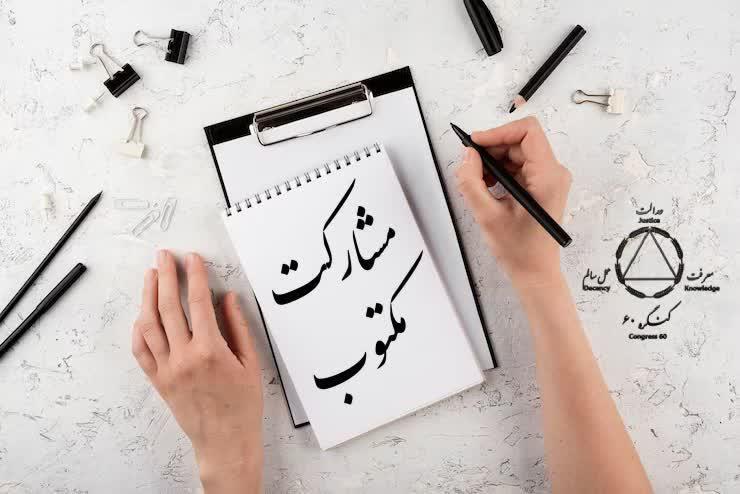 مشارکت
مکتوب
عدالت
Justice
عمل سالم
Decency
معرفت
Knowledge
کنگره ۶۰
Congress 60